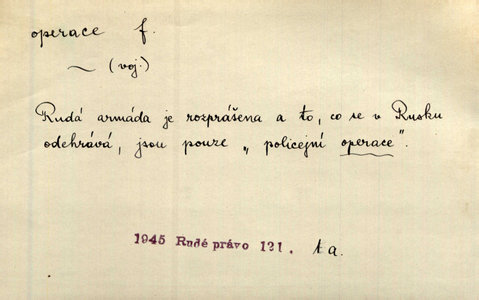 operace f.
~ (voj.)
Rudá armáda je rozprášena a to, co se v Rusku
odehrává, jsou pouze „policejní operace".
1945 Rudé právo 121. ta.